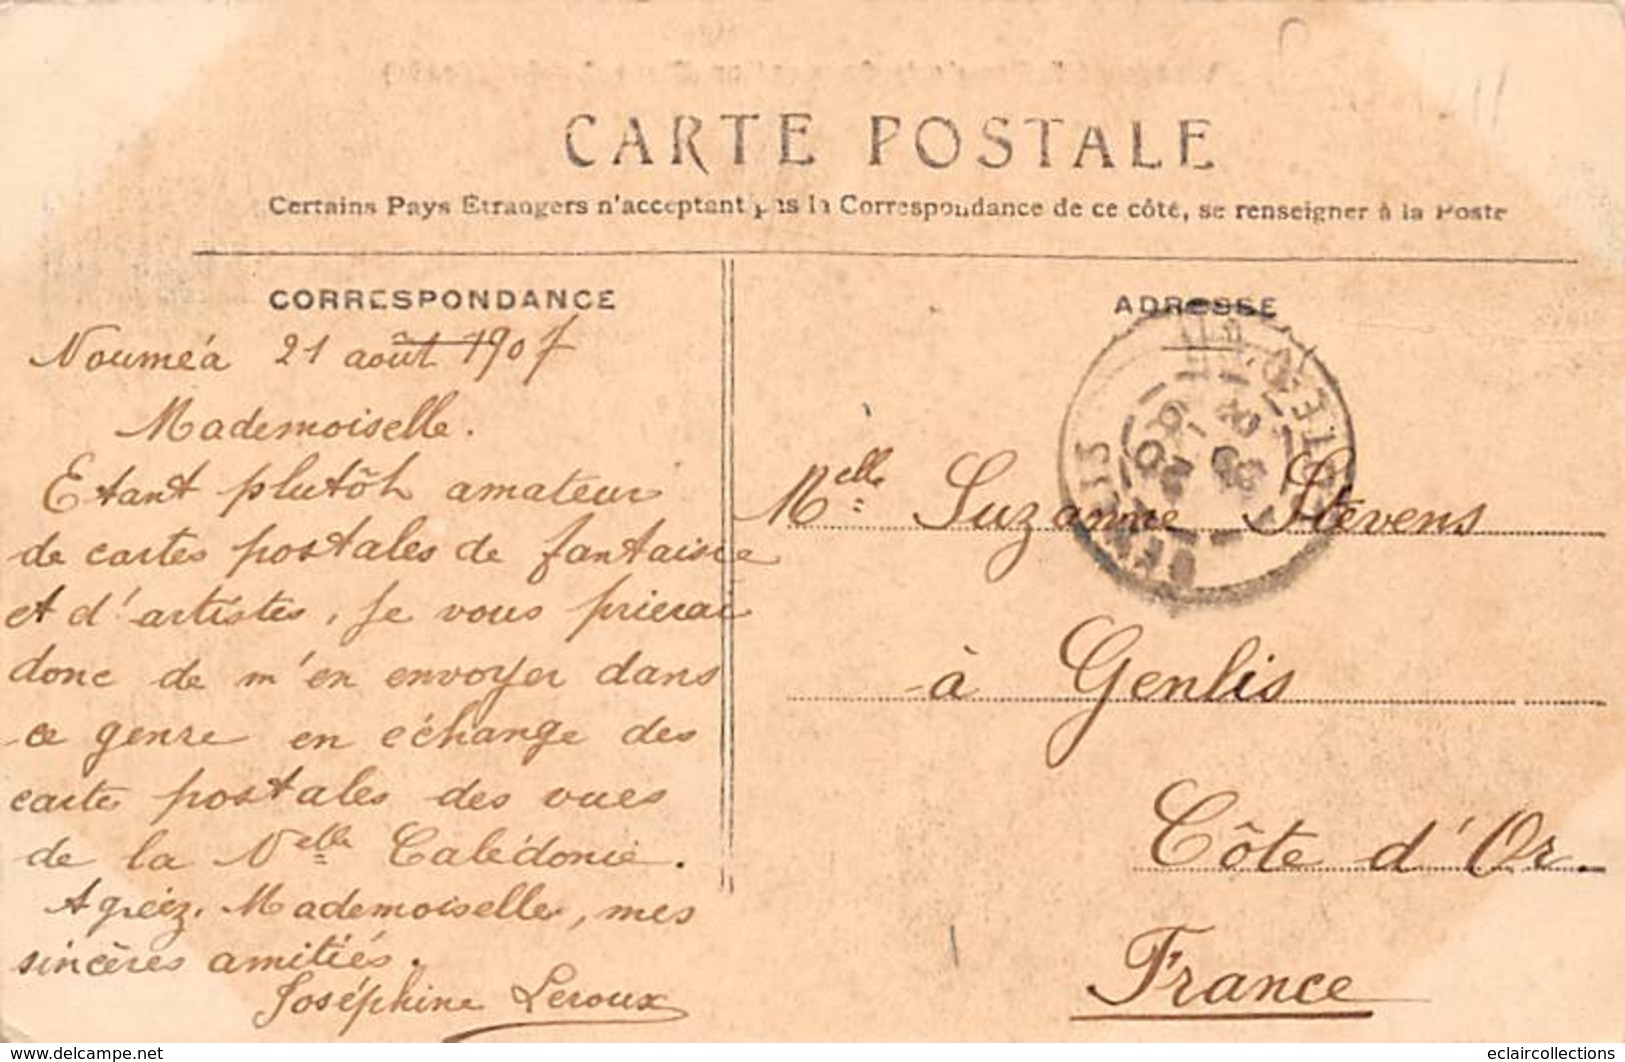 CARTE POSTALE
Certains Pays Étrangers n'acceptent pas la Correspondance de ce côté, se renseigner à la Poste
CORRESPONDANCE
Nouméa 21 août 1907
Mademoiselle.
Etant plutôh amateur
de cartes postales de fantaisie
et d'artistes, je vous prierai
donc de m'en envoyer dans
ce genre en échange des
cartes postales des vues
de la Nelle Calédonie.
Agréez, Mademoiselle, mes
sincères amitiés.
Joséphine Leroux
ADRESSE
GENLIS
CÔTE-D'
Melle Suzanne Stevens
à Genlis
Côte d'Or.
France
www.delcampe.net
eclaircollections